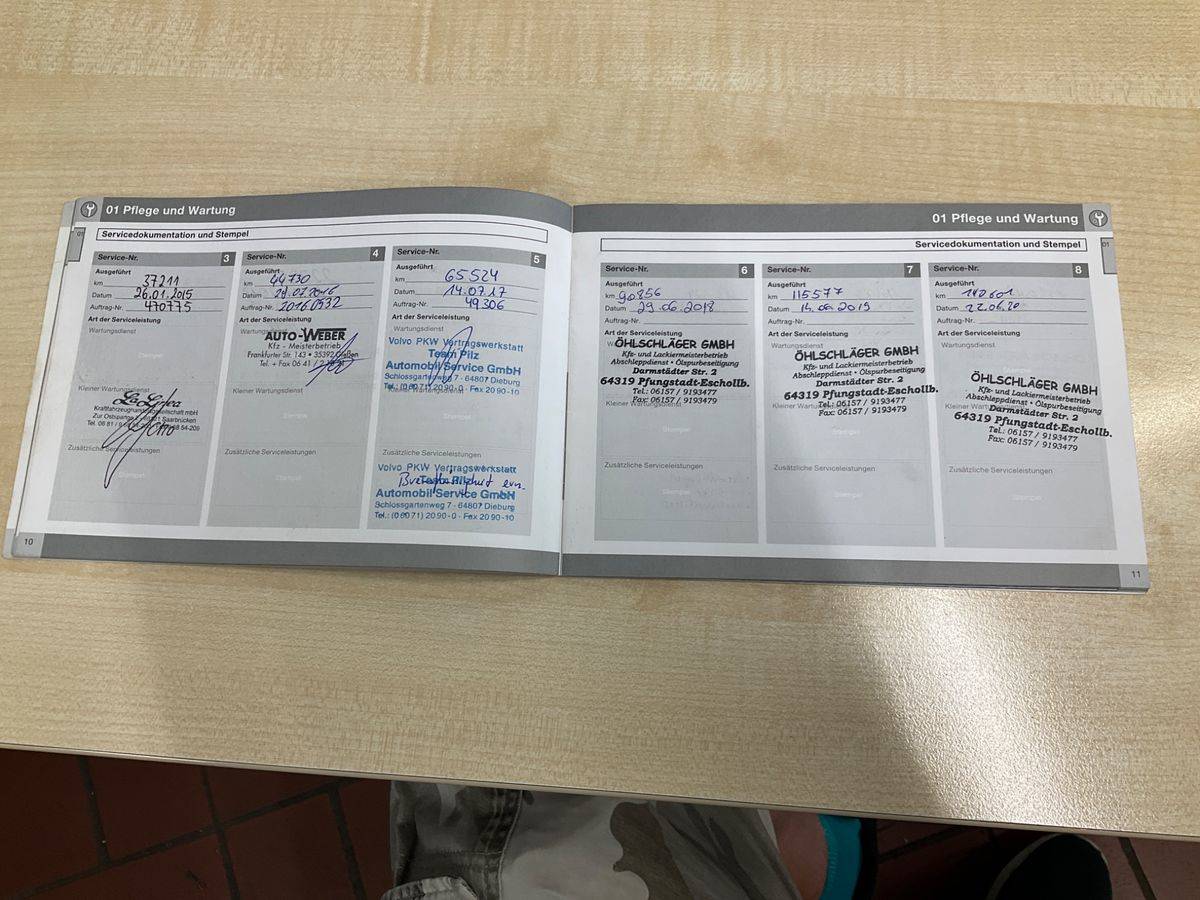 01 Pflege und Wartung
01
Servicedokumentation und Stempel
Service-Nr. 3
Ausgeführt
km 37211
Datum 26.01.2015
Auftrag-Nr. 470775
Art der Serviceleistung
Wartungsdienst
Stempel
Kleiner Wartungsdienst
Kraftfahrzeughandelsgesellschaft mbH
Zur Ostspange Saarbrücken
Tel. 06 81
Zusätzliche Serviceleistungen
Stempel
Service-Nr. 4
Ausgeführt
km 44730
Datum
Auftrag-Nr.
Art der Serviceleistung
Wartungsdienst
AUTO-WEBER
Kfz - Meisterbetrieb
Frankfurter Str. 143 • 35392 Gießen
Tel. + Fax 06 41 /
Kleiner Wartungsdienst
Stempel
Zusätzliche Serviceleistungen
Service-Nr. 5
Ausgeführt
km 65524
Datum 14.07.17
Auftrag-Nr. 49306
Art der Serviceleistung
Wartungsdienst
Volvo PKW Vertragswerkstatt
Team Pilz
Automobil Service GmbH
Schlossgartenweg 7 · 64807 Dieburg
Tel.: (0 60 71) 20 90-0 · Fax 20 90-10
Kleiner Wartungsdienst
Stempel
Zusätzliche Serviceleistungen
Volvo PKW Vertragswerkstatt
Team Pilz
Automobil Service GmbH
Schlossgartenweg 7 · 64807 Dieburg
Tel.: (0 60 71) 20 90-0 · Fax 20 90-10
10
01 Pflege und Wartung
01
Servicedokumentation und Stempel
Service-Nr. 6
Ausgeführt
km 90856
Datum 29.06.2018
Auftrag-Nr.
Art der Serviceleistung
Wartungsdienst
ÖHLSCHLÄGER GMBH
Kfz- und Lackiermeisterbetrieb
Abschleppdienst • Ölspurbeseitigung
Darmstädter Str. 2
64319 Pfungstadt-Eschollb.
Tel.: 06157 / 9193477
Fax: 06157 / 9193479
Kleiner Wartungsdienst
Stempel
Zusätzliche Serviceleistungen
Stempel
Service-Nr. 7
Ausgeführt
km 115577
Datum 14.06.2019
Auftrag-Nr.
Art der Serviceleistung
Wartungsdienst
ÖHLSCHLÄGER GMBH
Kfz- und Lackiermeisterbetrieb
Abschleppdienst • Ölspurbeseitigung
Darmstädter Str. 2
64319 Pfungstadt-Eschollb.
Tel.: 06157 / 9193477
Fax: 06157 / 9193479
Kleiner Wartungsdienst
Stempel
Zusätzliche Serviceleistungen
Stempel
Service-Nr. 8
Ausgeführt
km 140601
Datum 22.06.20
Auftrag-Nr.
Art der Serviceleistung
Wartungsdienst
ÖHLSCHLÄGER GMBH
Kfz- und Lackiermeisterbetrieb
Abschleppdienst • Ölspurbeseitigung
Kleiner Wartungsdienst
Darmstädter Str. 2
64319 Pfungstadt-Eschollb.
Tel.: 06157 / 9193477
Fax: 06157 / 9193479
Zusätzliche Serviceleistungen
Stempel
11